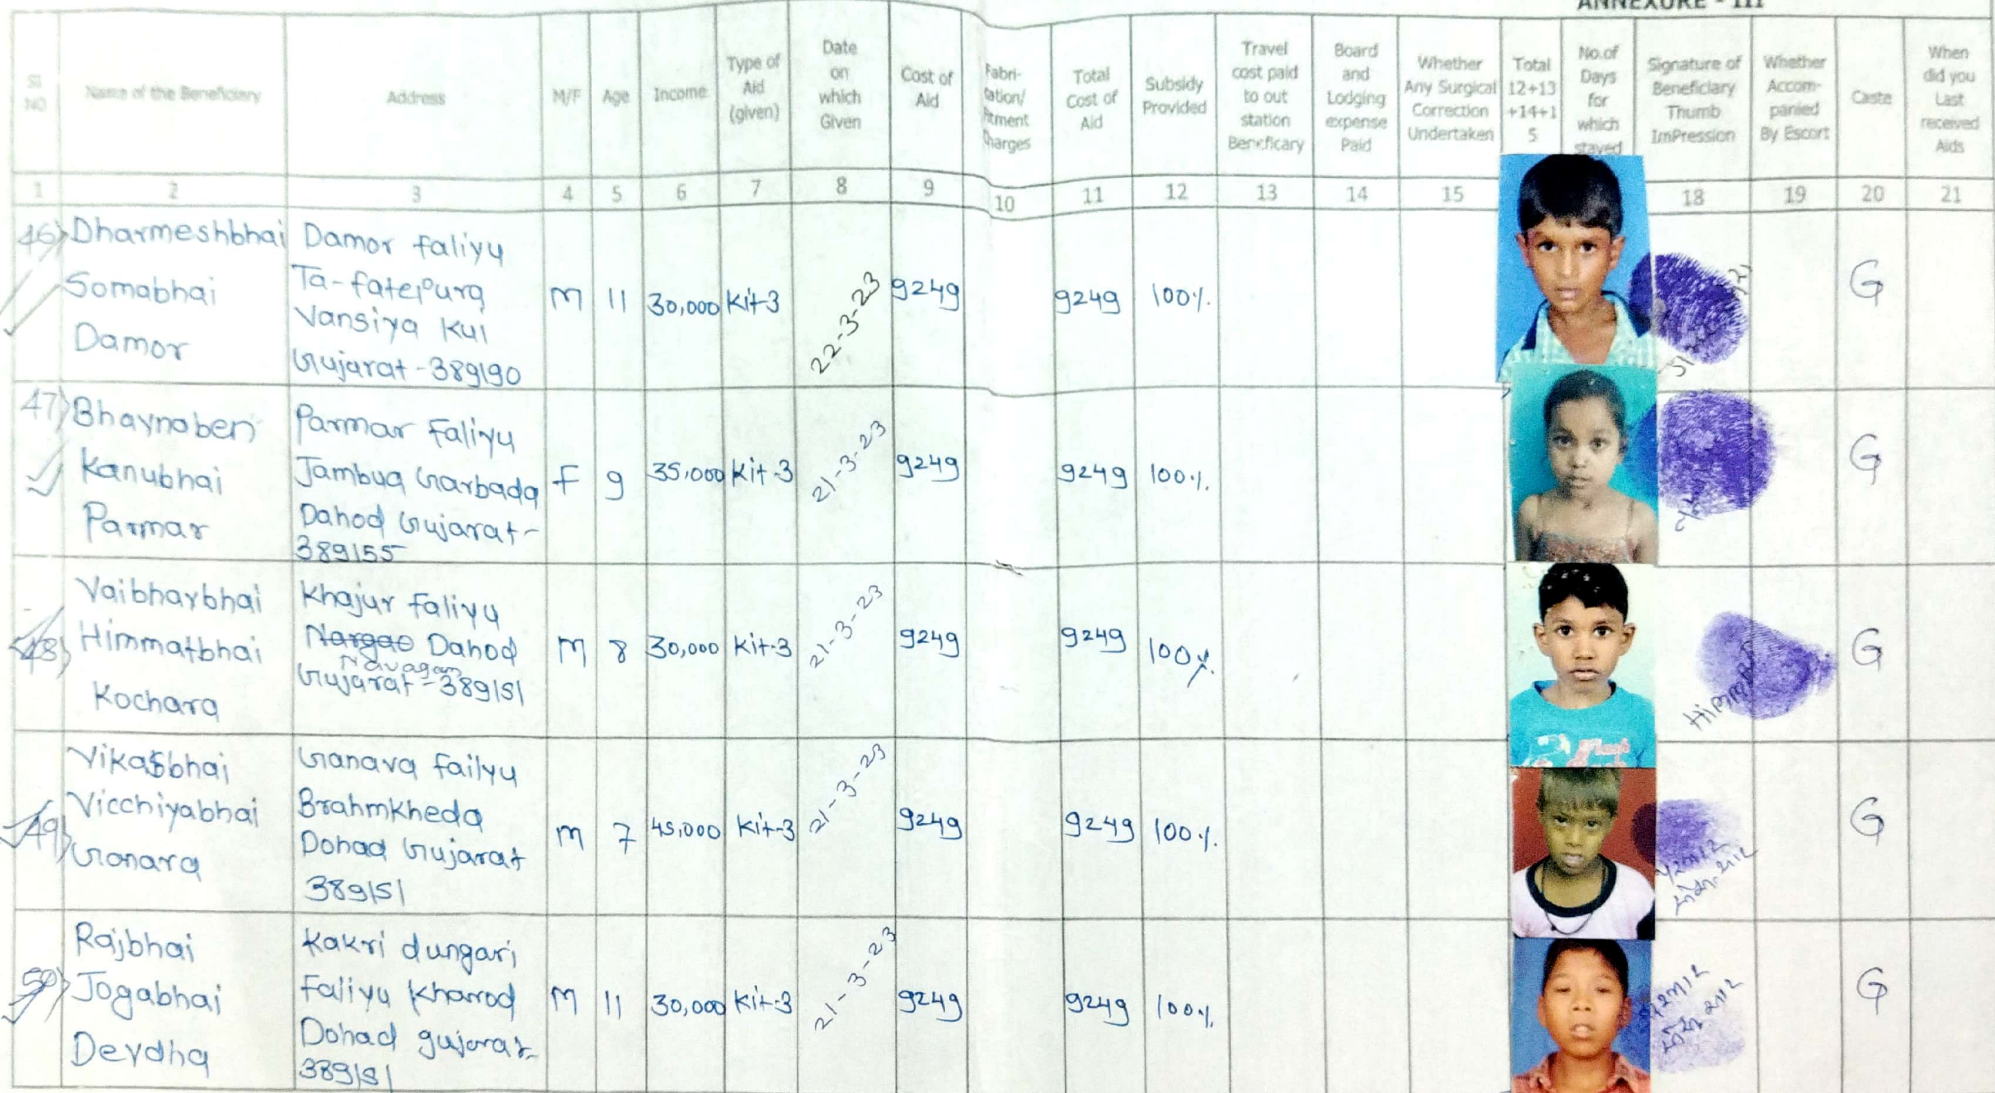 ANNEXURE - III
Sl NO
Name of the Beneficiary
Address
M/F
Age
Income
Type of Aid (given)
Date on which Given
Cost of Aid
Fabri- cation/ fitment Charges
Total Cost of Aid
Subsidy Provided
Travel cost paid to out station Beneficary
Board and Lodging expense Paid
Whether Any Surgical Correction Undertaken
Total 12+13 +14+1 5
No.of Days for which stayed
Signature of Beneficiary Thumb ImPression
Whether Accom- panied By Escort
Caste
When did you Last received Aids
1 2 3 4 5 6 7 8 9 10 11 12 13 14 15 18 19 20 21
46) Dharmeshbhai
Somabhai
Damor
Damor faliyu
Ta-fatepura
Vansiya Kui
Gujarat-389190
M 11 30,000 Kit-3 22-3-23 9249 9249 100% G
47) Bhaynaben
Kanubhai
Parmar
Parmar Faliyu
Jambua Garbada
Dahod Gujarat-
389155
F 9 35,000 Kit-3 21-3-23 9249 9249 100% G
48) Vaibhavbhai
Himmatbhai
Kochara
Khajur faliyu
Nargao Dahod
Navagam
Gujarat-389151
M 8 30,000 Kit-3 21-3-23 9249 9249 100% G
49) Vikasbhai
Vicchiyabhai
Ganara
Ganava failyu
Brahmkheda
Dohad Gujarat
389151
M 7 45,000 Kit-3 21-3-23 9249 9249 100% G
50) Rajbhai
Jogabhai
Devdha
Kakri dungari
Faliyu Kharod
Dohad gujarat-
389151
M 11 30,000 Kit-3 21-3-23 9249 9249 100% G